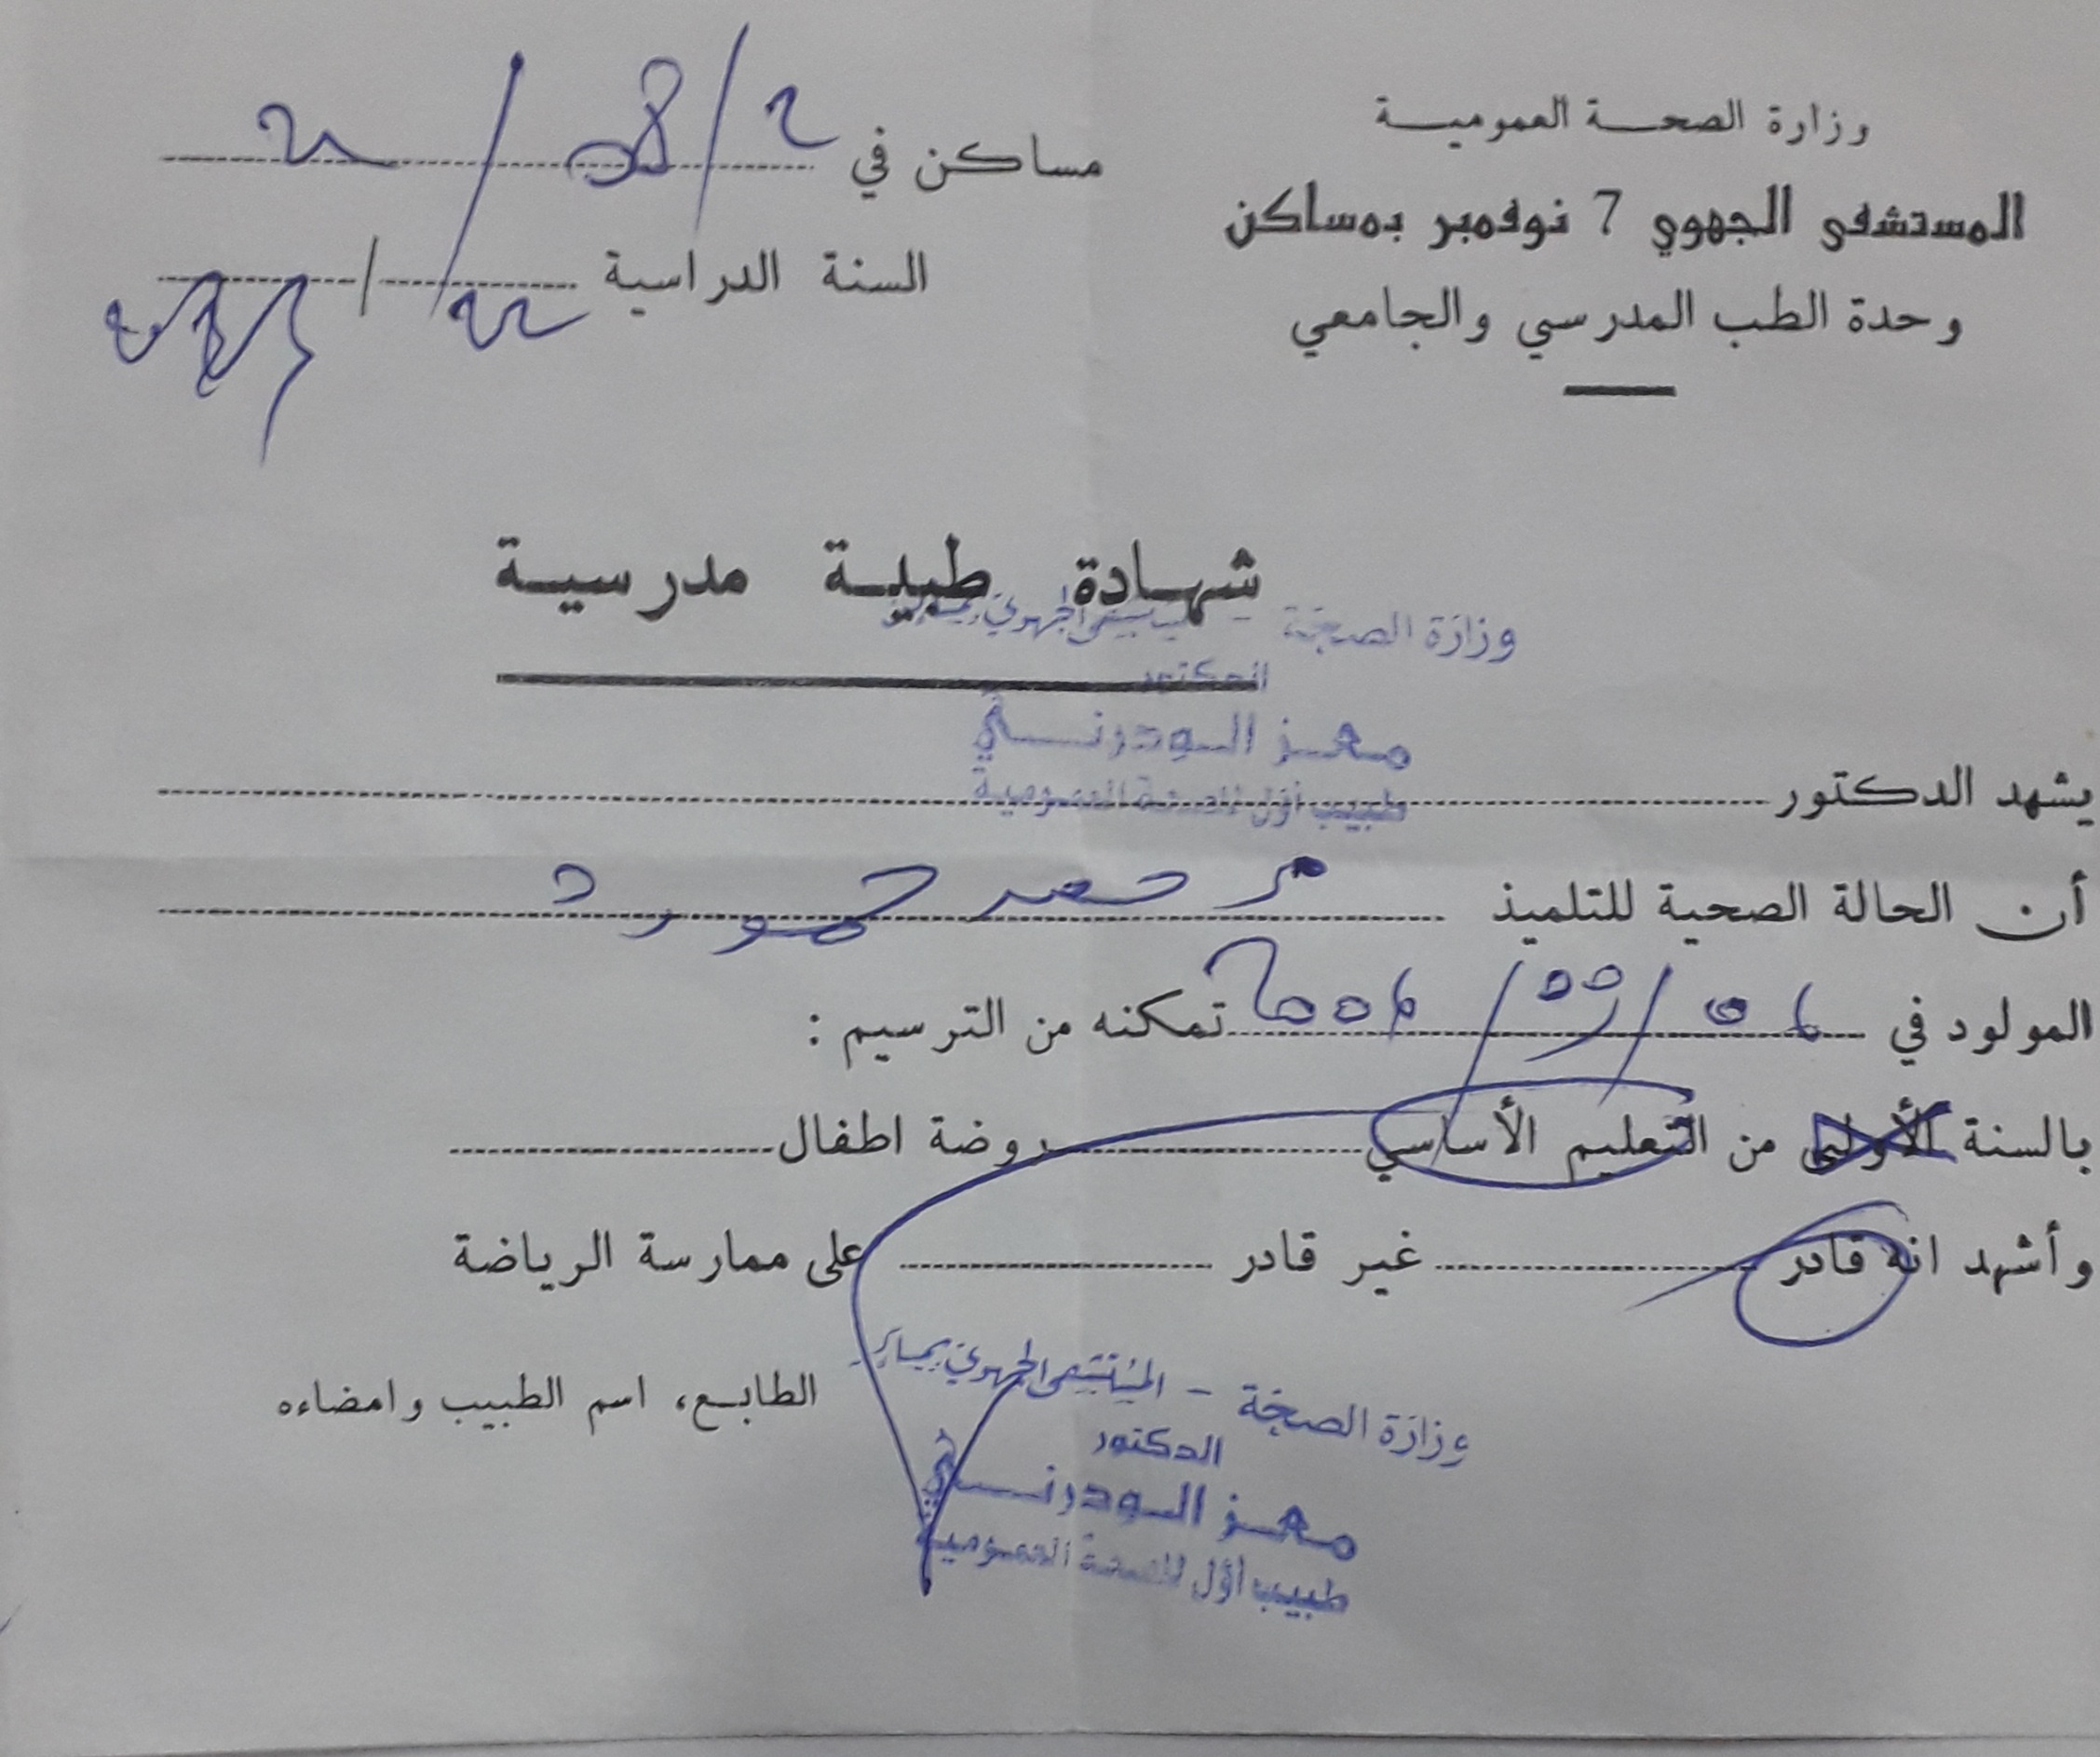 وزارة الصحة العمومية
المستشفى الجهوي 7 نوفمبر بمساكن
وحدة الطب المدرسي والجامعي
مساكن في
السنة الدراسية
شهادة طبية مدرسية
وزارة الصحة
الدكتور
معز الودرني
طبيب أول للصحة العمومية
يشهد الدكتور
أن الحالة الصحية للتلميذ
المولود في تمكنه من الترسيم :
بالسنة الأولى من التعليم الأساسي روضة اطفال
وأشهد انه قادر غير قادر على ممارسة الرياضة
الطابع، اسم الطبيب وامضاءه
وزارة الصحة - المستشفى الجهوي
الدكتور
معز الودرني
طبيب أول للصحة العمومية